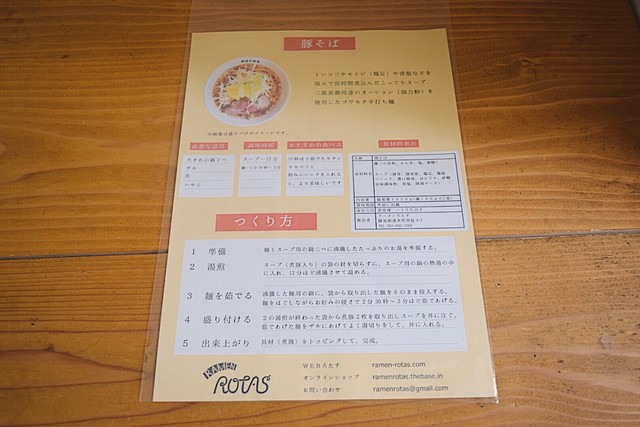 豚そば
トンコツやモミジ（鶏足）や背脂などを
強火で長時間煮込んだこってりスープ
二郎系御用達のオーション（強力粉）を
使用したゴワモチ平打ち麺
※画像は盛りつけのイメージです。
必要な道具
大きめの鍋２つ
ザル
丼
ハサミ
調理時間
スープ…12分
おすすめの食べ方
原材料表示
つくり方
1 準備 麺とスープ用の鍋二つに沸騰したたっぷりのお湯を準備する。
2 湯煎 スープ（煮豚入り）の袋の封を切らずに、スープ用の鍋の熱湯の中
に入れ、12分ほど沸騰させて温める。
3 麺を茹でる 沸騰した麺用の鍋に、袋から取り出した麺をそのまま投入する。
麺をほぐしながらお好みの硬さで2分30秒〜3分ほど茹であげる。
4 盛り付ける 2の湯煎が終わった袋から煮豚2枚を取り出しスープを丼に注ぐ。
茹であげた麺をザルにあげてよく湯切りをして、丼に入れる。
5 出来上がり 具材（煮豚）をトッピングして、完成。
RAMEN
ROTAS
WEBろたす ramen-rotas.com
オンラインショップ ramenrotas.thebase.in
お問い合わせ ramenrotas@gmail.com